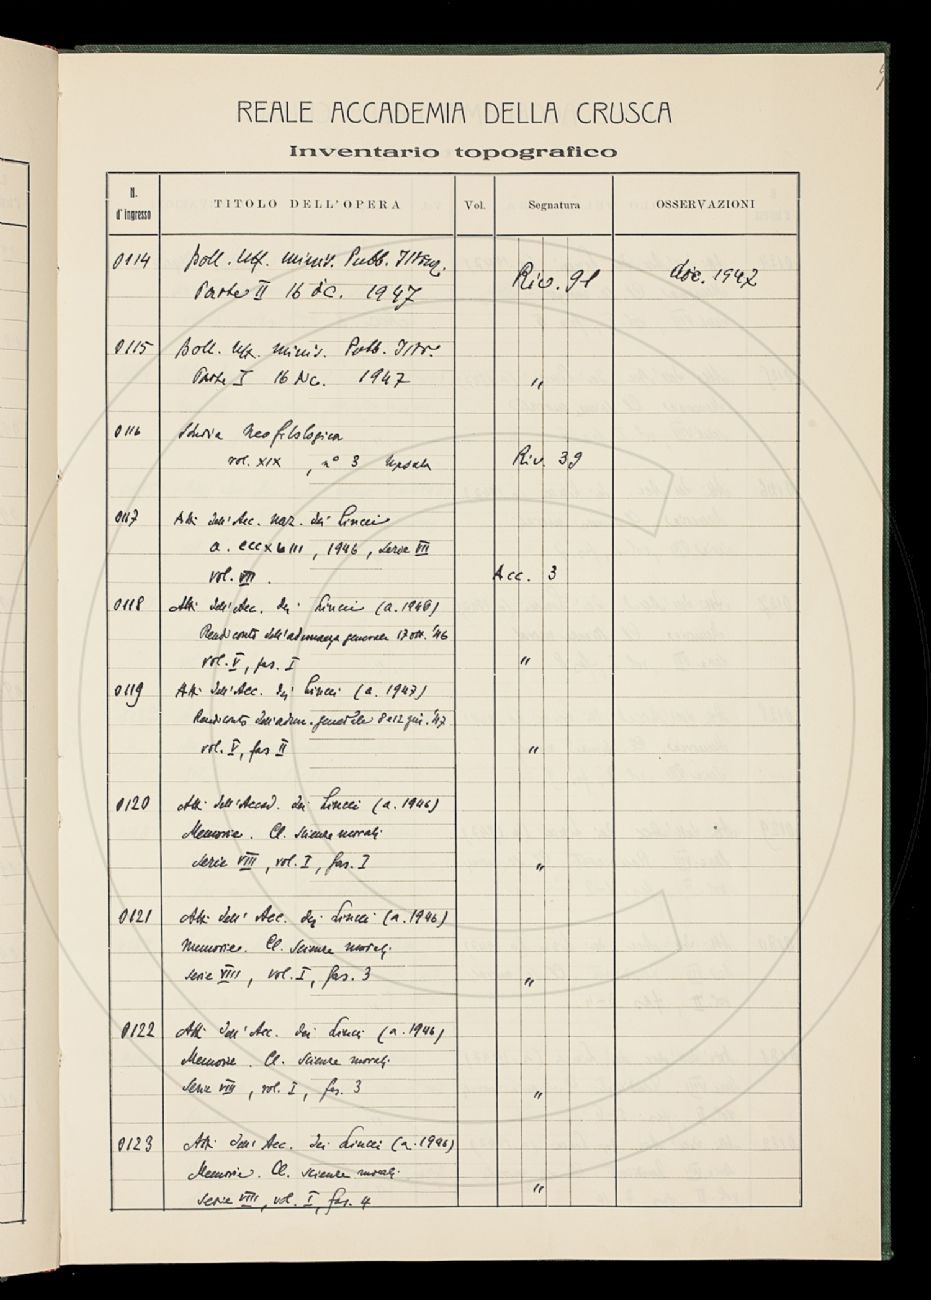 REALE ACCADEMIA DELLA CRUSCA
Inventario topografico
N. d'ingresso TITOLO DELL'OPERA Vol. Segnatura OSSERVAZIONI
0114 Boll. Uff. minis. Pubb. Istruz.
Parte II 16 dic. 1947 Riv. 91 dic. 1947
0115 Boll. Uff. minis. Pubb. Istr.
Parte I 16 Dic. 1947 "
0116 Studia Neofilologica
vol. XIX, n° 3 Upsala Riv. 39
0117 Atti dell'Acc. naz. dei Lincei
a. CCCXLIII, 1946, serie VII
vol. VII. Acc. 3
0118 Atti dell'Acc. dei Lincei (a. 1946)
Rendiconto dell'adunanza generale 17 ott. '46
vol. V, fas. I "
0119 Atti dell'Acc. dei Lincei (a. 1947)
Rendiconto dell'adun. generale 8 e 12 giu. '47
vol. V, fas II "
0120 Atti dell'Accad. dei Lincei (a. 1946)
Memorie. Cl. Scienze morali
Serie VIII, vol. I, fas. I "
0121 Atti dell'Acc. dei Lincei (a. 1946)
Memorie. Cl. Scienze morali
serie VIII, vol. I, fas. 3 "
0122 Atti dell'Acc. dei Lincei (a. 1946)
Memorie. Cl. Scienze morali
Serie VIII, vol. I, fas. 3 "
0123 Atti dell'Acc. dei Lincei (a. 1946)
Memorie. Cl. scienze morali
serie VIII, vol. I, fas. 4 "